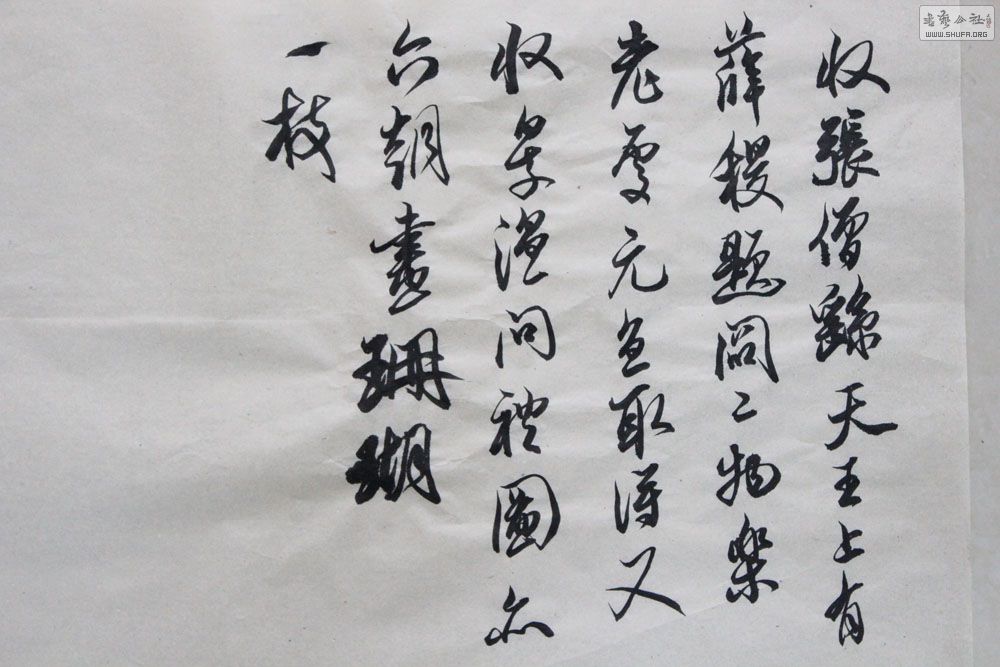 收張僧繇天王上有
薛稷題閻二物樂
老處元直取得又
收景温問禮圖亦
六朝畫珊瑚
一枝
書藝公社
WWW.SHUFA.ORG